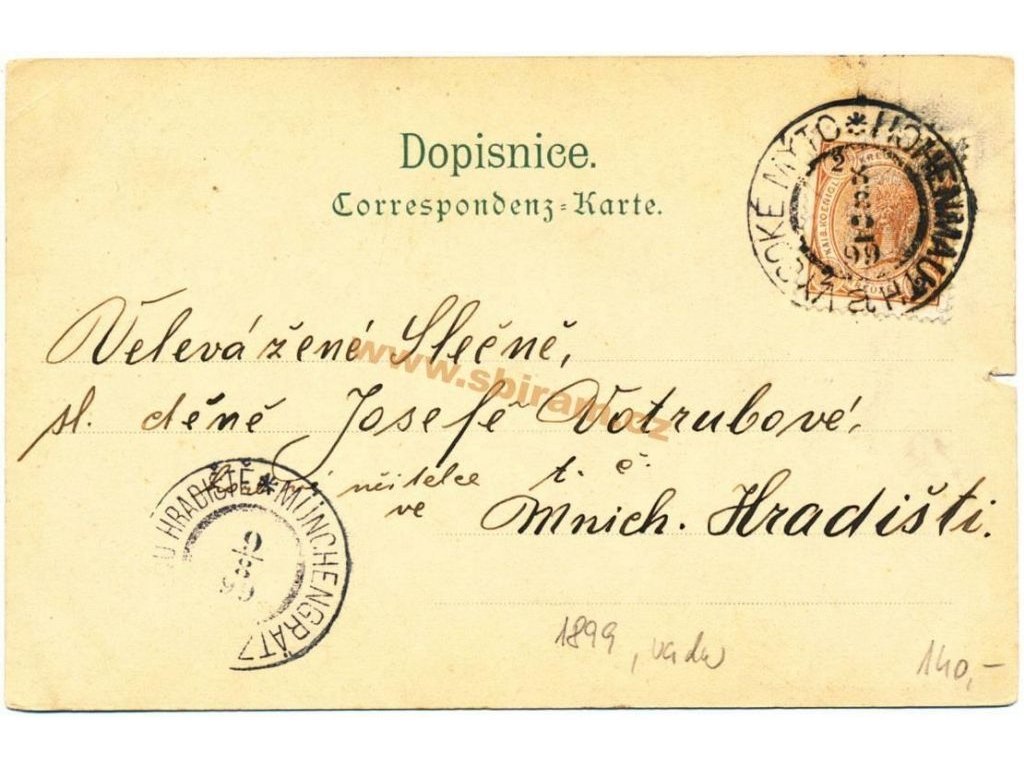 Dopisnice.
Correspondenz=Karte.
VYSOKÉ MÝTO * HOHENMAUTH
99
Velevážené Slečně,
www.sbiram.cz
sl. děně Josefě Votrubové,
učitelce t. č.
ve Mnich. Hradišti.
HRADIŠTĚ * MÜNCHENGRÄTZ
9
8
99
1899, vada
140,-